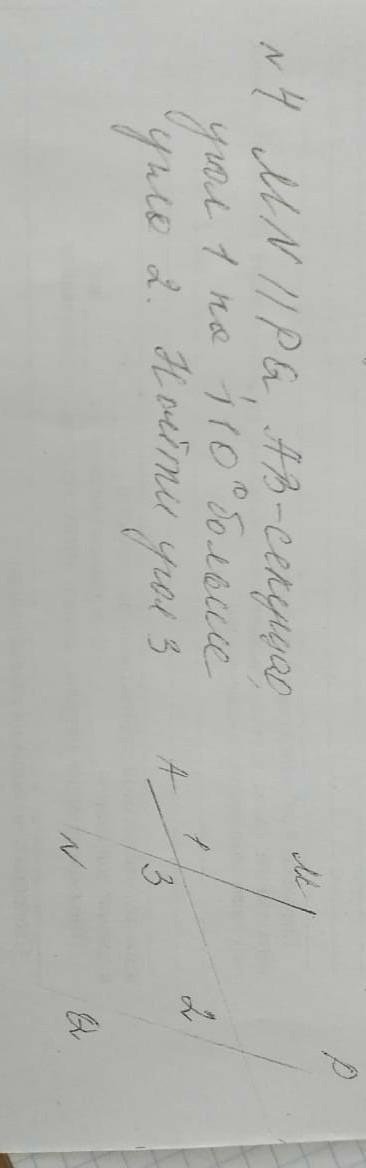 №4 MN || PQ, AB-секущая,
угол 1 на 110° больше
угла 2. Найти угол 3
A
1
M
3
N
2
P
Q